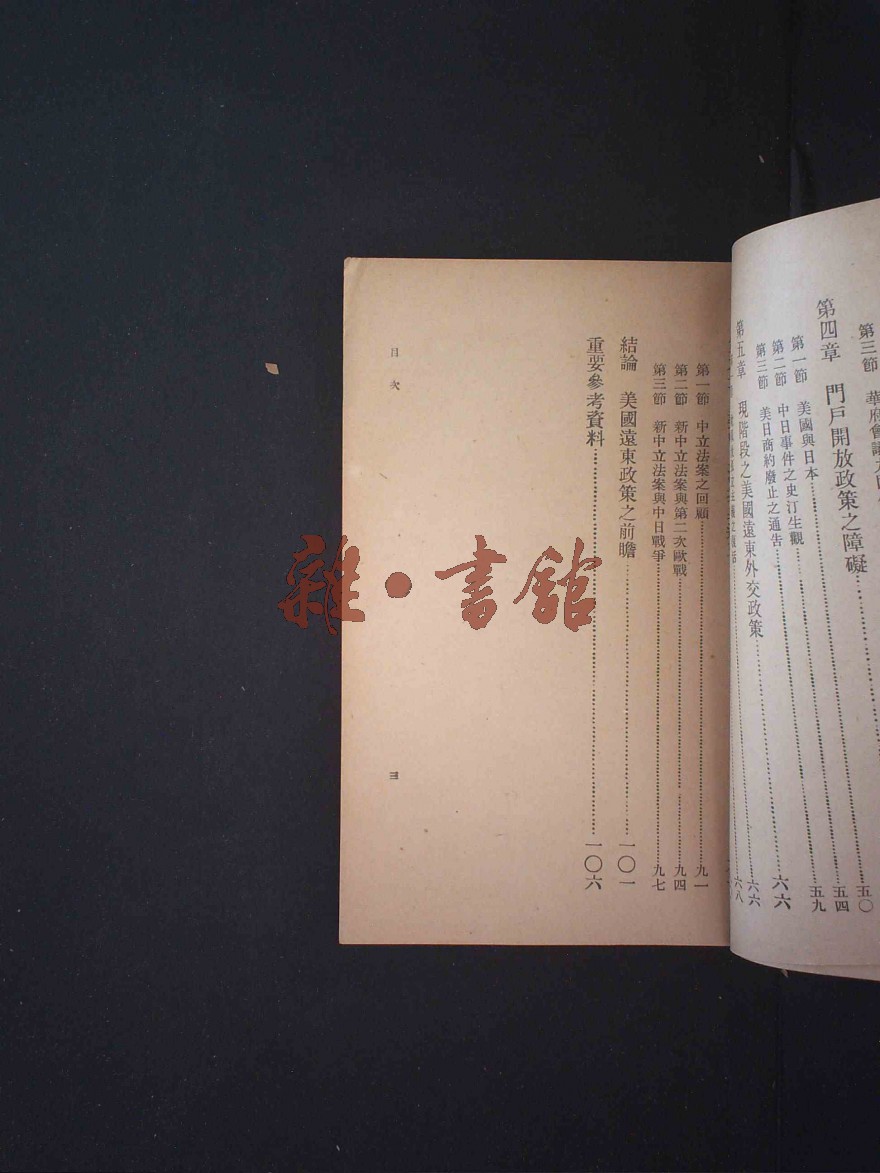 第三節 華府會議
第四章 門戶開放政策之障礙
第一節 美國與日本 五〇
第二節 中日事件之史汀生觀 五四
第三節 美日商約廢止之通告 五九
第五章 現階段之美國遠東外交政策 六六
六六
六八
第一節 中立法案之回顧 九一
第二節 新中立法案與第二次歐戰 九四
第三節 新中立法案與中日戰爭 九七
結論 美國遠東政策之前瞻 一〇一
重要參考資料 一〇六
目次
三
雜·書館